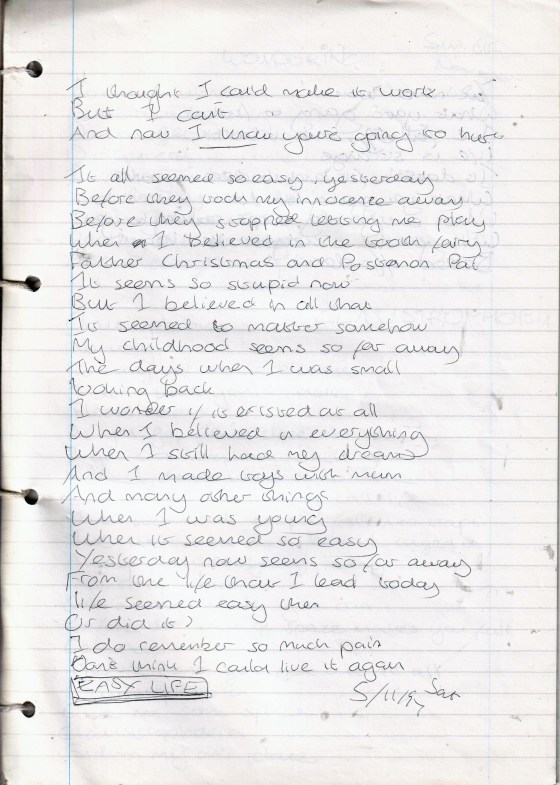 I thought I could make it work
But I can't
And now I know you're going to hurt
It all seemed so easy, yesterday
Before they took my innocence away
Before they stopped letting me play
When I believed in the tooth fairy
Father Christmas and Postman Pat
It seems so stupid now
But I believed in all that
It seemed to matter somehow
My childhood seems so far away
The days when I was small
looking back
I wonder if it existed at all
When I believed in everything
When I still had my dreams
And I made toys with mum
And many other things
When I was young
When it seemed so easy
Yesterday now seems so far away
From the life that I lead today
life seemed easy then
Or did it?
I do remember so much pain
Don't think I could live it again
EASY LIFE
5/11/97 Sat